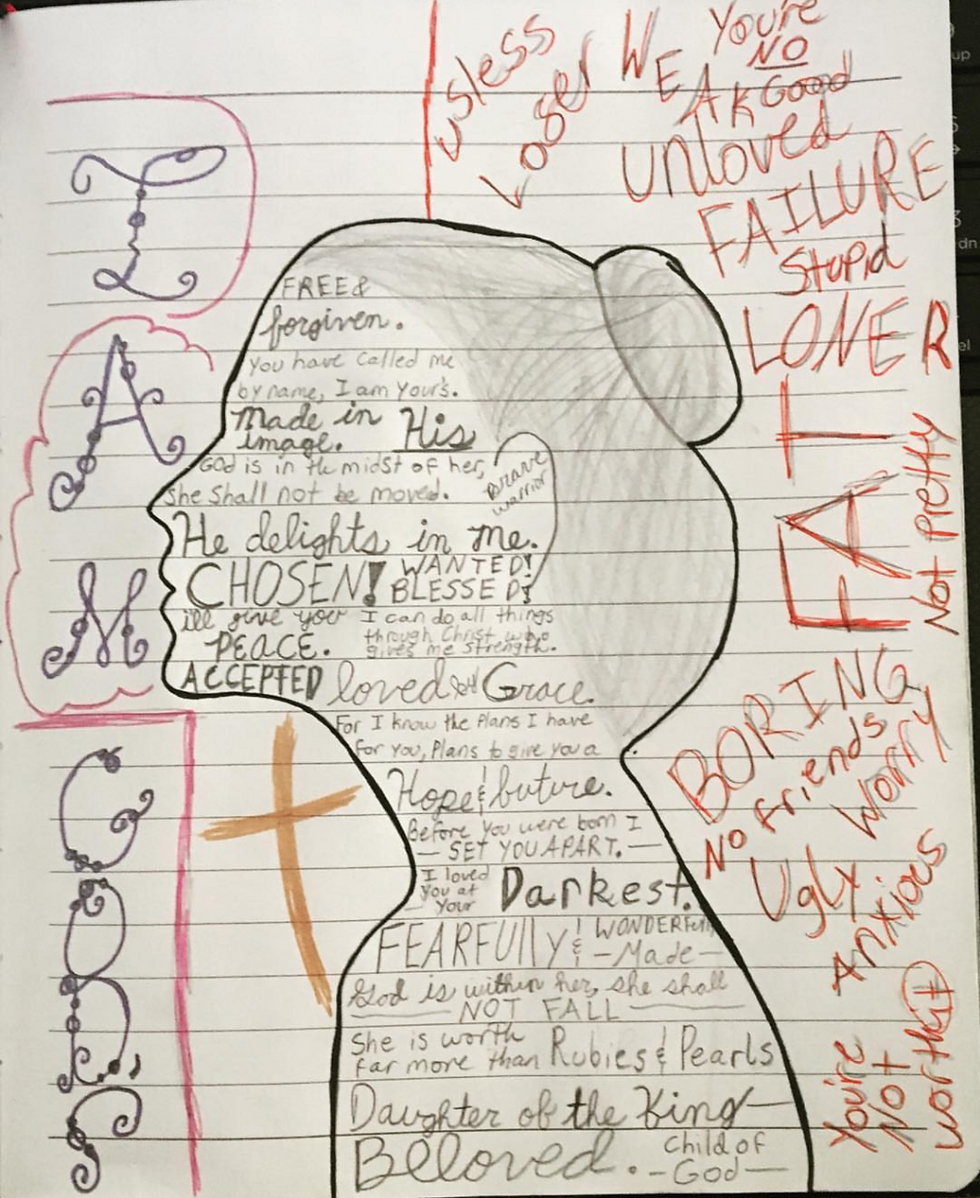 I
A
M
GOD's
usless
Loser
WEAK
You're
NO
Good
unloved
FAILURE
Stupid
LONER
FAT
Not Pretty
BORING
No friends
worry
Ugly
Anxious
You're
Not
worth it
FREE &
forgiven.
You have called me
by name, I am your's.
Made in His
image.
God is in the midst of her,
she shall not be moved.
Brave
warrior
He delights in me.
CHOSEN! WANTED!
BLESSED!
ill give you
PEACE.
I can do all things
through Christ who
gives me strength.
ACCEPTED loved by Grace.
For I know the Plans I have
for you, Plans to give you a
Hope & future.
Before you were born I
— SET YOU APART. —
I loved
you at
your Darkest.
FEARFUlly & WONDERFully
– Made –
God is within her, she shall
NOT FALL
She is worth
far more than Rubies & Pearls
Daughter of the King
Beloved. – Child of
God –
up
dn
el